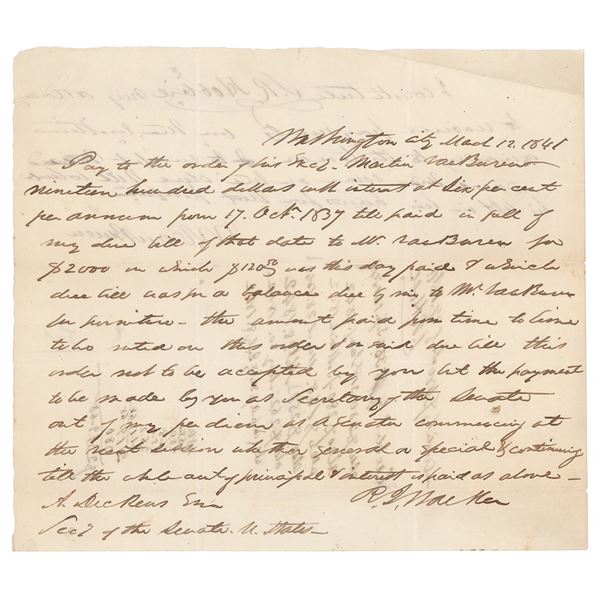 Washington City March 12. 1841
Pay to the order of his Excy. Martin Van Buren
nineteen hundred dollars with interest at six per cent
per annum from 17. Octr. 1837 till paid in full of
my due bill of that date to Mr. Van Buren for
$2000 on which $120 50 was this day paid & which
due bill was for a balance due by me to Mr Van Buren
for furniture - the amount paid from time to time
to be noted on this order & on said due bill this
order not to be accepted by you but the payment
to be made by you as Secretary of the Senate
out of my per diem as a Senator commencing at
the next session whether general or special & continuing
till the whole amt of principal & interest is paid as above -
A. Dickens Esq R. J. Walker
Secy of the Senate U. States -